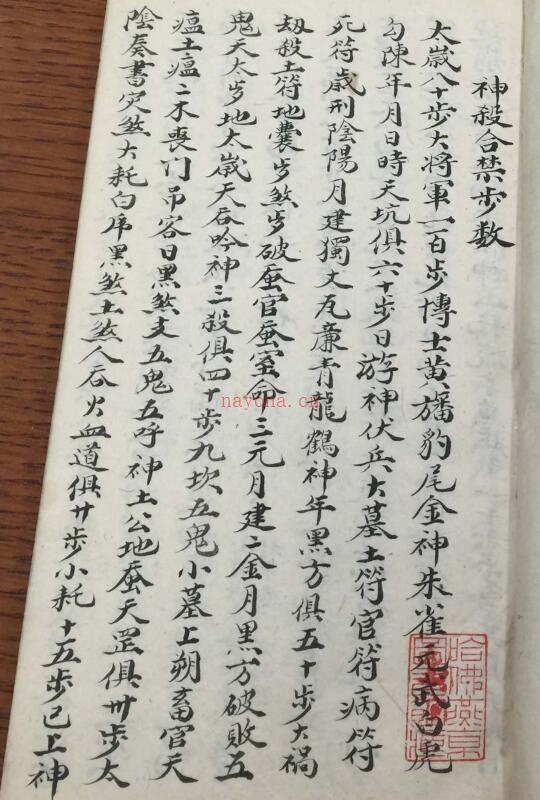 神殺合禁步数
太歲八十步大将軍一百步博士黄旛豹尾金神朱雀元武白虎
勾陳年月日時天坑俱六十步日游神伏兵大墓土符官符病符
死符歲刑陰陽月建獨丈瓦廉青龍鶴神年黑方俱五十步大禍
刼殺土符地囊步煞步破蚕官蚕室命三元月建二金月黑方破敗五
鬼天太步地太歲天吞吟神三殺俱四十步九坎五鬼小墓上朔畜官天
瘟土瘟二木喪门吊客日黑煞支五鬼五呼神土公地蚕天罡俱卅步太
陰奏書定煞大耗白虎黑煞土煞人吞火血道俱廿步小耗十五步已上神
哈佛燕京
nayona.cn